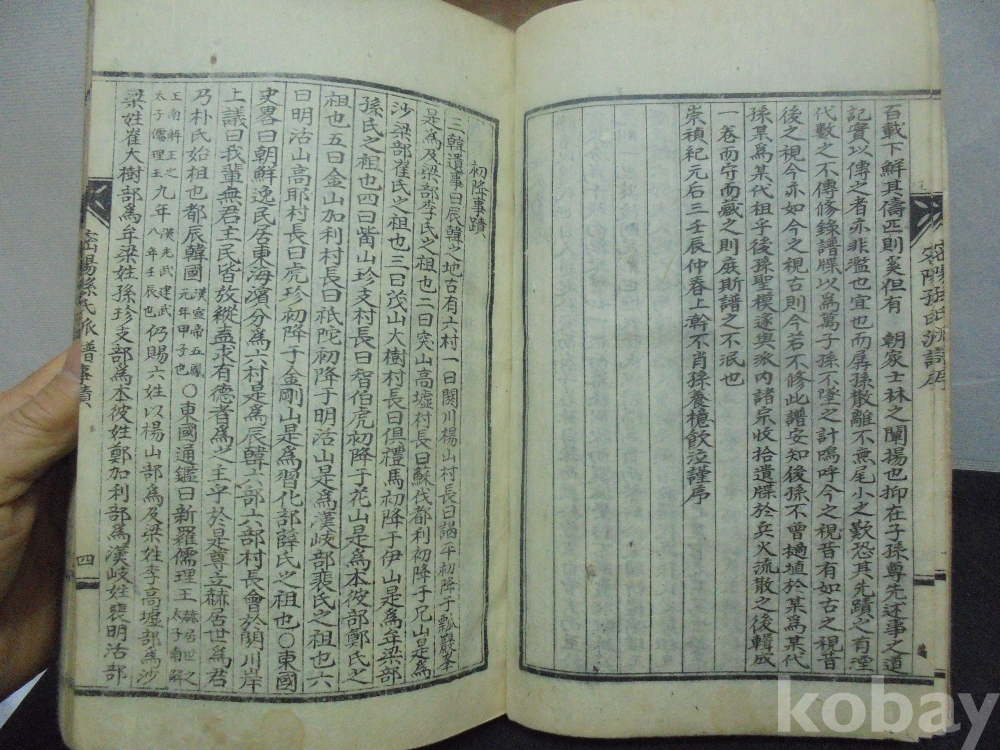 百載下鮮其儔匹則奚但有 朝家士林之闡揚也抑在子孫尊先述事之道
記實以傳之者亦非濫也宜也而孱孫散離不無尾小之歎恐其先蹟之有湮
代數之不傳修錄譜牒以爲萬子孫不墜之計嗚呼今之視昔有如古之視昔
後之視今亦如今之視古則今若不修此譜安知後孫不曾擿埴於某爲某代
孫某爲某代祖乎後孫聖模遂與派內諸宗收拾遺牒於兵火流散之後輯成
一卷而守而藏之則庶斯譜之不泯也
崇禎紀元后三壬辰仲春上澣不肖孫養檍飮泣謹序
密陽孫氏派譜序
初降事蹟
三韓遺事曰辰韓之地古有六村一曰閼川楊山村長曰謁平初降于瓢巖峯
是爲及梁部李氏之祖也二曰突山高墟村長曰蘇伐都利初降于兄山是爲
沙梁部崔氏之祖也三曰茂山大樹村長曰俱禮馬初降于伊山是爲牟梁部
孫氏之祖也四曰觜山珍支村長曰智伯虎初降于花山是爲本彼部鄭氏之
祖也五曰金山加利村長曰祇陀初降于明活山是爲漢岐部裴氏之祖也六
曰明活山高耶村長曰虎珍初降于金剛山是爲習化部薛氏之祖也○東國
史畧曰朝鮮逸民居東海濱分爲六村是爲辰韓六部六部村長會於閼川岸
上議曰我輩無君主民皆放縱盍求有德者爲之主乎於是尊立赫居世爲君
乃朴氏始祖也都辰韓國漢宣帝五鳳元年甲子也○東國通鑑曰新羅儒理王赫居世之太子南解
王南解王之太子儒理王九年漢光武建武八年壬辰也仍賜六姓以楊山部爲及梁姓李高墟部爲沙
梁姓崔大樹部爲牟梁姓孫珍支部爲本彼姓鄭加利部爲漢岐姓裵明活部
密陽孫氏派譜事蹟
四
kobay